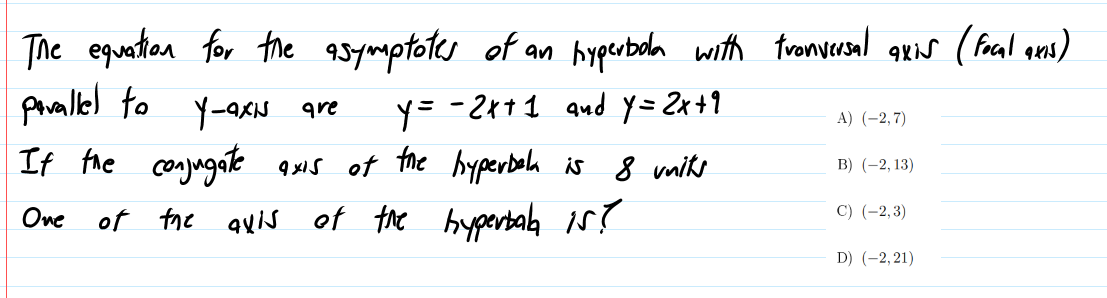 The equation for the asymptotes of an hyperbola with tranversal axis (focal axis)
parallel to y-axis are y = -2x+1 and y = 2x+9
If the conjugate axis of the hyperbola is 8 units
One of the axis of the hyperbola is?
A) (−2, 7)
B) (−2, 13)
C) (−2, 3)
D) (−2, 21)